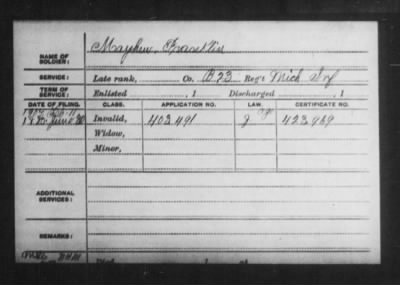 NAME OF SOLDIER: Mayhew, Franklin
SERVICE: Late rank, Co. B. 23 Reg't Mich Inf
TERM OF SERVICE: Enlisted , 1 Discharged , 1
DATE OF FILING. CLASS. APPLICATION NO. LAW. CERTIFICATE NO.
June 30 Invalid, 403,491 423,969
Widow,
Minor,
ADDITIONAL SERVICES:
REMARKS: